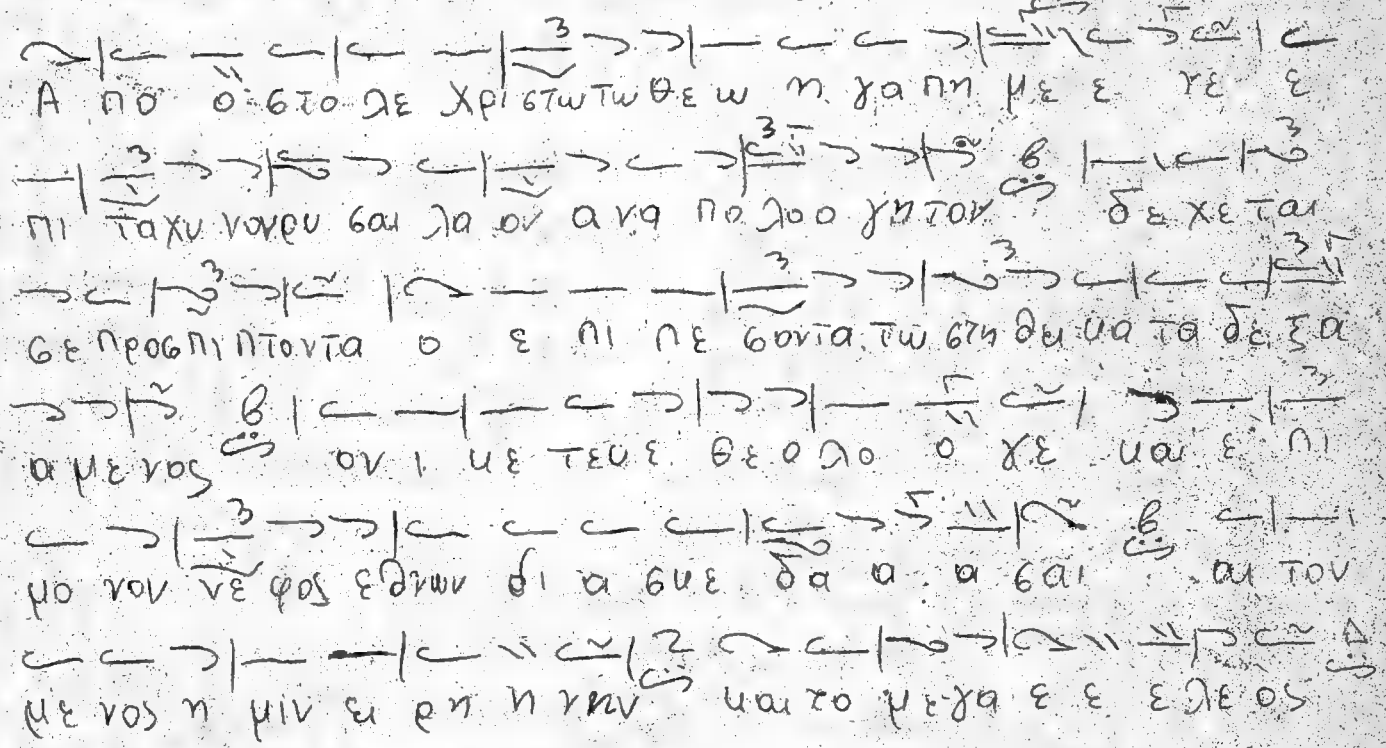 Α πο ο στο λε Χρι στω τω θε ω η γα πη με ε νε ε
πι τα χυ νον ρυ σαι λα ον α να πο λο ο γη τον δε χε ται
σε προσ πι πτον τα ο ε πι πε σον τα τω στη θει και τα δε ξα
α με νος ον ι κε τευ ε θε ο λο ο γε και ε πι
μο νον νε φος ε θνων δι α σκε δα α α σαι αι του
με νος η μιν ει ρη η νην και το με γα ε ε ε λε ος